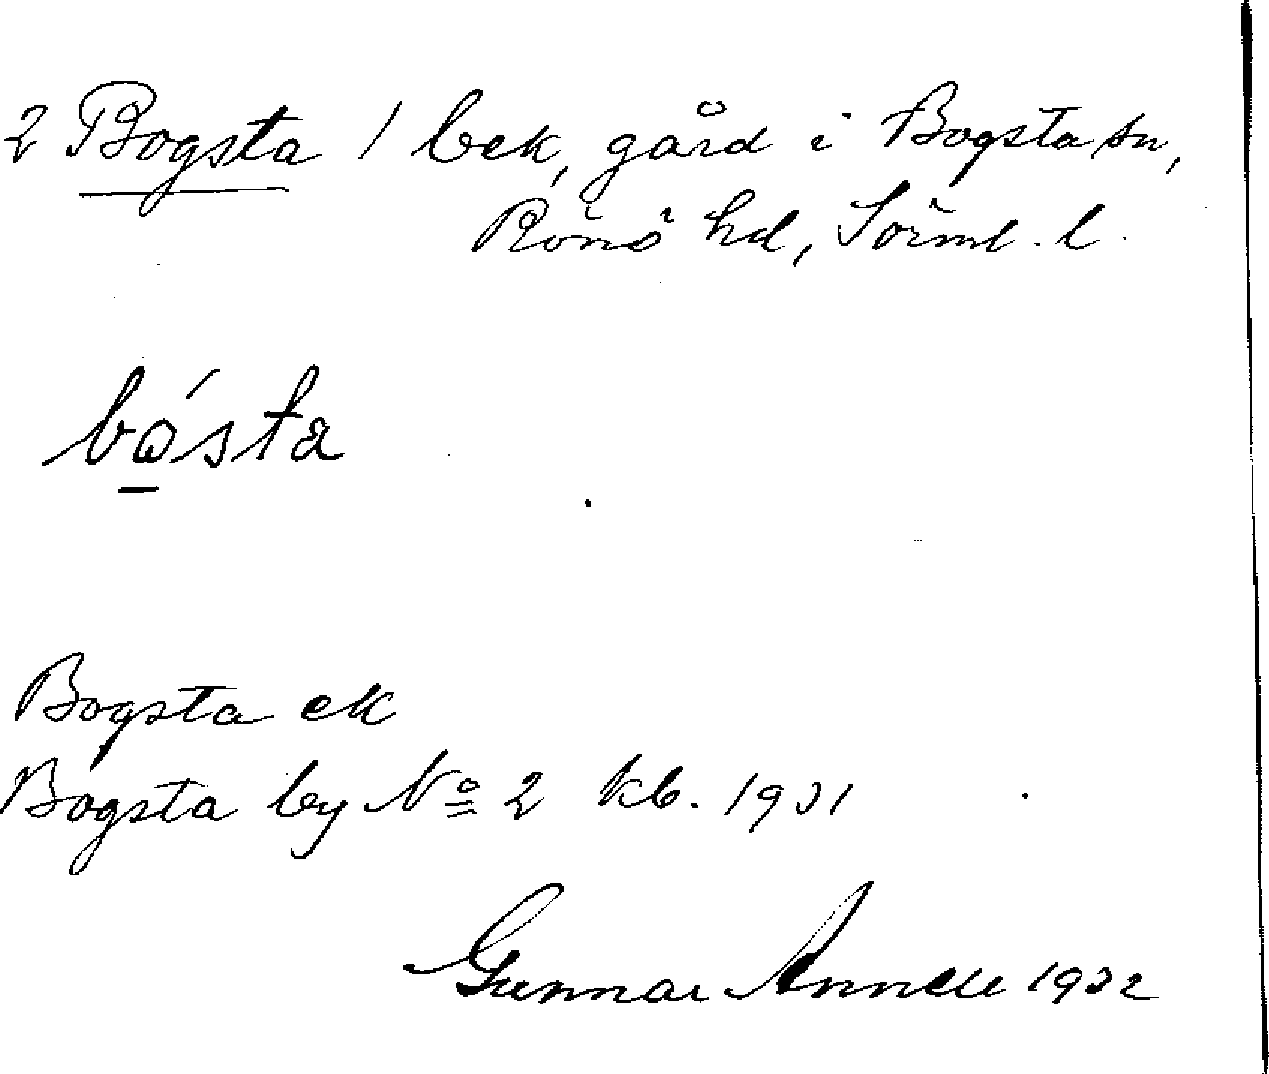 2 Bogsta / bek, gård i Bogsta sn,
Rönö hd, Sörml. l.
bo̱´sta
Bogsta ek
Bogsta by No 2 kb. 1931
Gunnar Annell 1932